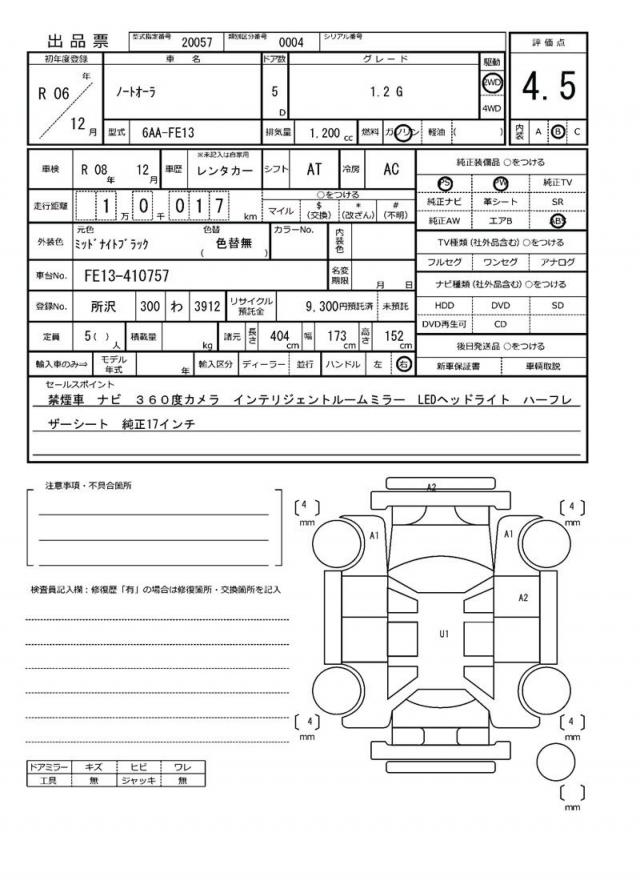 出品票 型式指定番号 20057 類別区分番号 0004 シリアル番号
評価点
4.5
内装 A B C
初年度登録 車名 ドア数 グレード 駆動
R 06 年 12 月 ﾉｰﾄｵｰﾗ 5 D 1.2 G 2WD
4WD
型式 6AA-FE13 排気量 1,200 cc 燃料 ガソリン 軽油 ( )
車検 R 08 年 12 月 車歴 ※未記入は自家用 レンタカー シフト AT 冷房 AC
走行距離 1 万 0 千 0 1 7 km ○をつける
マイル $ (交換) * (改ざん) # (不明)
外装色 元色 ﾐｯﾄﾞﾅｲﾄﾌﾞﾗｯｸ 色替 ( 色替無 ) カラーNo. 内装色
車台No. FE13-410757 名変期限 月 日
登録No. 所沢 300 わ 3912 リサイクル預託金 9,300円預託済 未預託
定員 5( ) 人 積載量 kg 諸元 長さ 404 cm 幅 173 cm 高さ 152 cm
輸入車のみ⇒ モデル年式 年 輸入区分 ディーラー 並行 ハンドル 左 右
純正装備品 ○をつける
PS PW 純正TV
純正ナビ 革シート SR
純正AW エアB ABS
TV種類(社外品含む) ○をつける
フルセグ ワンセグ アナログ
ナビ種類(社外品含む) ○をつける
HDD DVD SD
DVD再生可 CD
後日発送品 ○をつける
新車保証書 車輌取説
セールスポイント
禁煙車 ナビ 360度カメラ インテリジェントルームミラー LEDヘッドライト ハーフレ
ザーシート 純正17インチ
注意事項・不具合箇所
検査員記入欄：修復歴「有」の場合は修復箇所・交換箇所を記入
ドアミラー キズ ヒビ ワレ
工具 無 ジャッキ 無
A2
[ 4 ] mm
[ 4 ] mm
A1
A1
A2
U1
[ 4 ] mm
[ 4 ] mm
[ ] mm